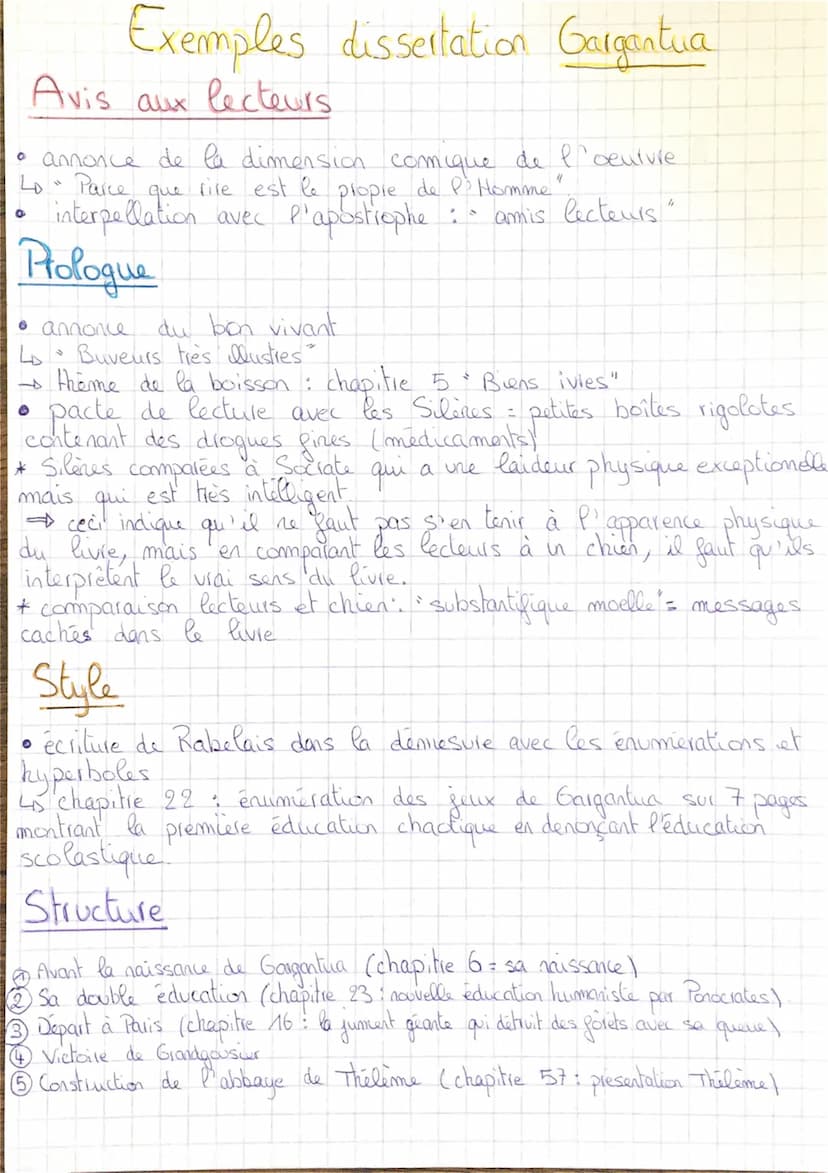 Exemples dissertation Gargantua
Avis aux lecteurs
• annonce de la dimension comique de l'oeuvre
↳ "Parce que rire est le propre de l'Homme"
• interpellation avec l'apostrophe : "amis lecteurs"
Prologue
• annonce du bon vivant
↳ "Buveurs très illustres"
→ thème de la boisson : chapitre 5 "Biens ivres"
• pacte de lecture avec les Silènes = petites boîtes rigolotes
contenant des drogues fines (médicaments)
* Silènes comparées à Socrate qui a une laideur physique exceptionelle
mais qui est très intelligent.
⇒ ceci indique qu'il ne faut pas s'en tenir à l'apparence physique
du livre, mais en comparant les lecteurs à un chien, il faut qu'ils
interprètent le vrai sens du livre.
* comparaison lecteurs et chien : "substantifique moelle" = messages
cachés dans le livre
Style
• écriture de Rabelais dans la démesure avec les énumérations et
hyperboles
↳ chapitre 22 : énumération des jeux de Gargantua sur 7 pages
montrant la première éducation chaotique en dénonçant l'éducation
scolastique.
Structure
① Avant la naissance de Gargantua (chapitre 6 = sa naissance)
② Sa double éducation (chapitre 23 : nouvelle éducation humaniste par Ponocrates)
③ Départ à Paris (chapitre 16 : la jument géante qui détruit des forêts avec sa queue)
④ Victoire de Grandgousier
⑤ Construction de l'abbaye de Thélème (chapitre 57 : présentation Thélème)